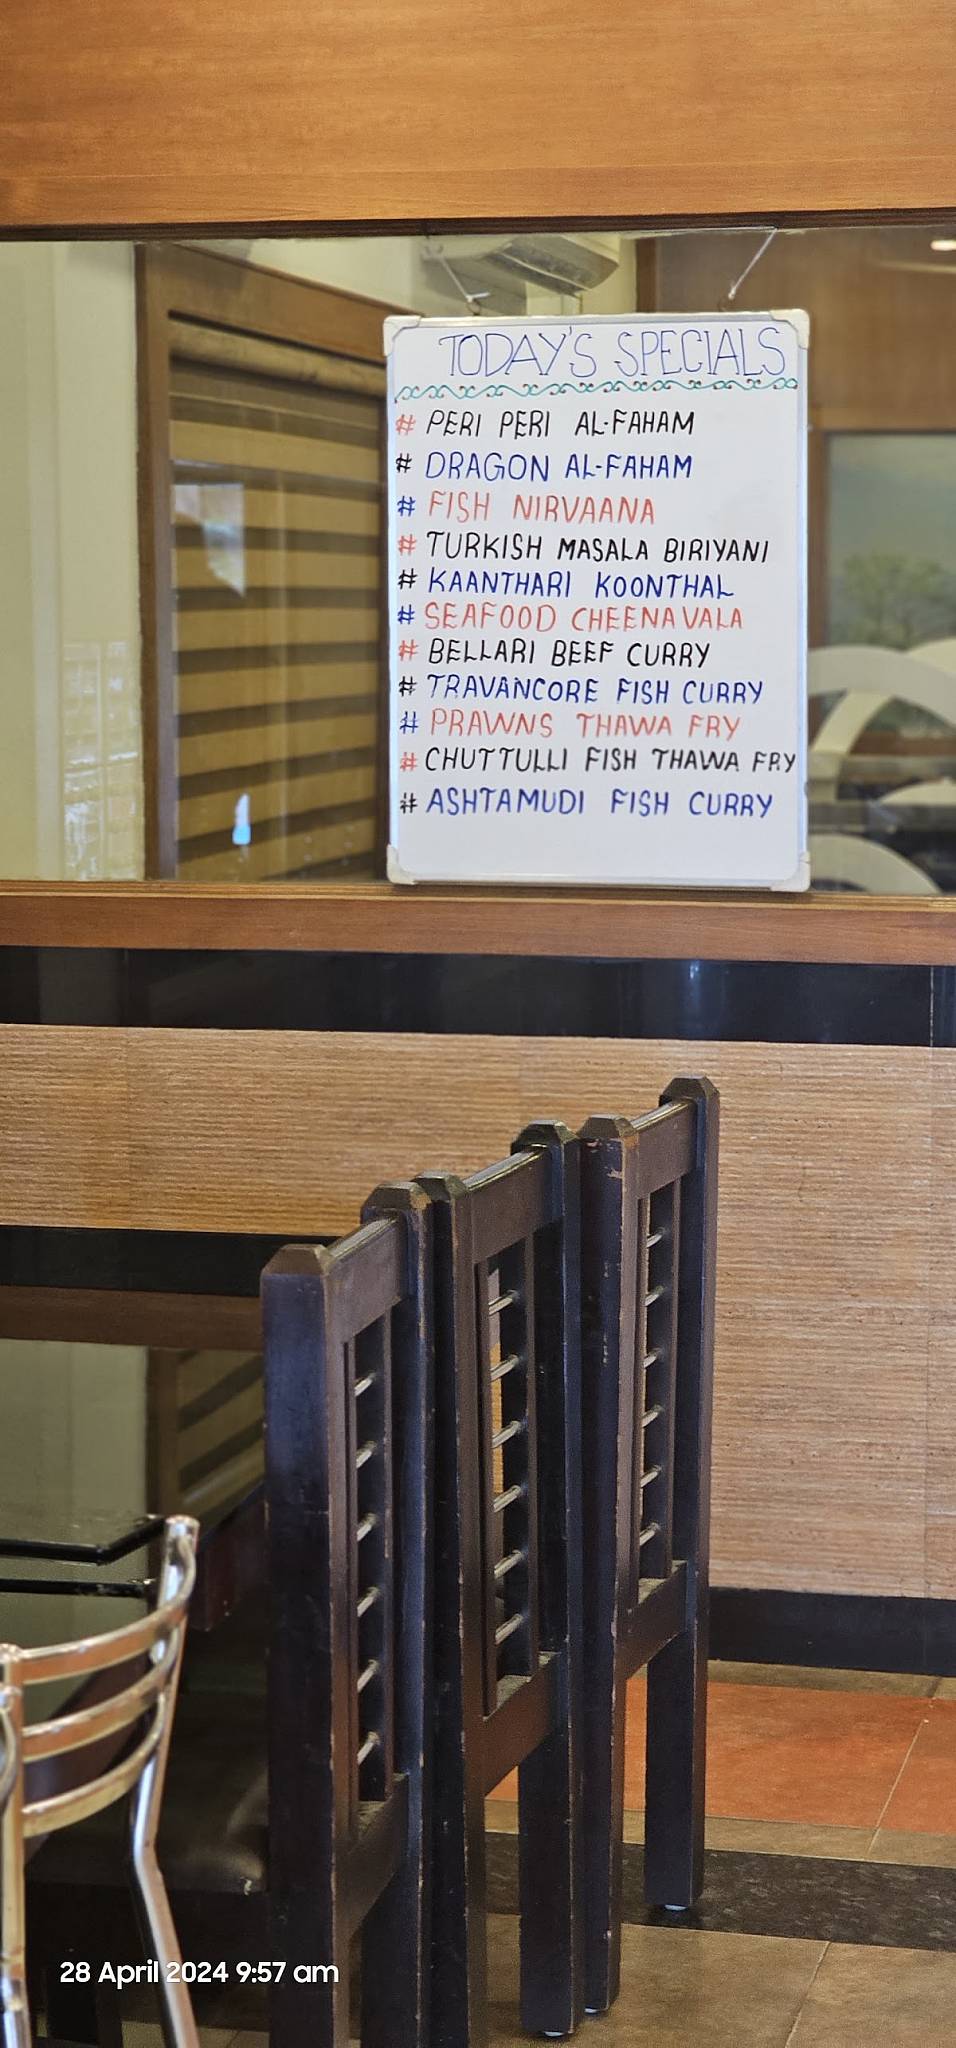 TODAY'S SPECIALS
# PERI PERI AL-FAHAM
# DRAGON AL-FAHAM
# FISH NIRVAANA
# TURKISH MASALA BIRIYANI
# KAANTHARI KOONTHAL
# SEAFOOD CHEENAVALA
# BELLARI BEEF CURRY
# TRAVANCORE FISH CURRY
# PRAWNS THAWA FRY
# CHUTTULLI FISH THAWA FRY
# ASHTAMUDI FISH CURRY
28 April 2024 9:57 am